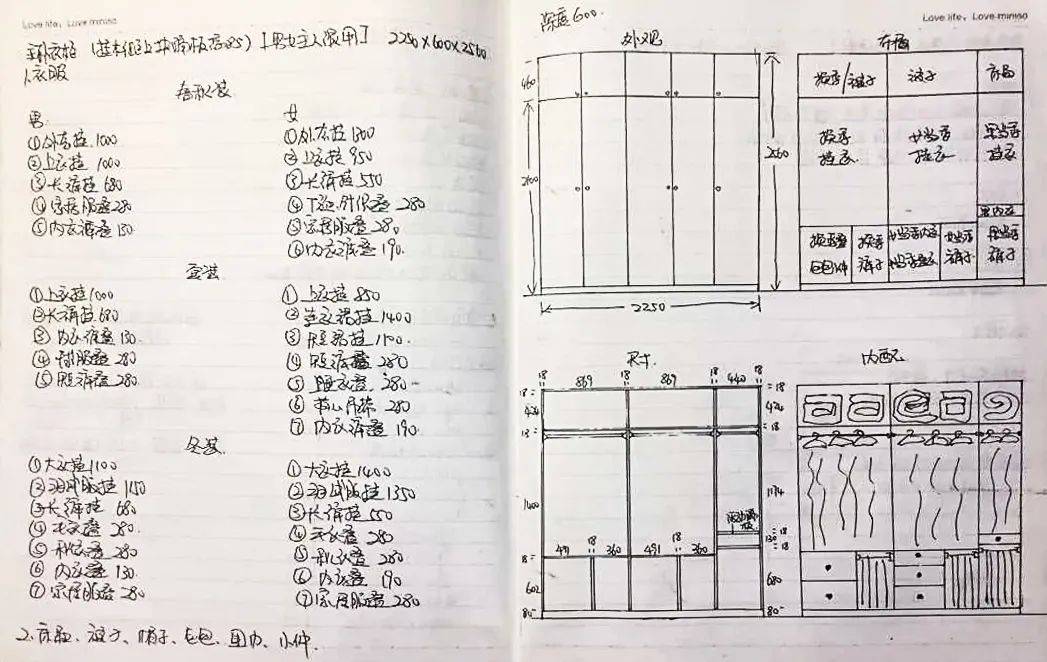 Love life, Love miniso
主卧衣柜 2250×600×2560
1.衣服
春秋装
男
①外套挂 1000
②上衣挂 1000
③长裤挂 680
④家居服叠 280
⑤内衣裤叠 130
女
①外套挂 1300
②上衣挂 950
③长裤挂 550
④ 280
⑤家居服叠 280
⑥内衣裤叠 190
夏装
①上衣挂 1000
②长裤挂 680
③内衣裤叠 130
④ 280
⑤短裤叠 280
①上衣挂 850
②连衣裙挂 1400
③短裙挂 1100
④短裤叠 280
⑤ 280
⑥ 280
⑦内衣裤叠 190
冬装
①大衣挂 1100
②羽绒服挂 1150
③长裤挂 680
④毛衣叠 280
⑤秋衣叠 280
⑥内衣叠 130
⑦家居服叠 280
①大衣挂 1400
②羽绒服挂 1350
③长裤挂 550
④毛衣叠 280
⑤秋衣叠 280
⑥内衣叠 190
⑦家居服叠 280
2.床品、被子、帽子、包包、围巾、小件
Love life, Love miniso
深度600
外观
460
2100
2560
2250
布局
换季/被子
被子
床品
换季
挂衣
女当季
挂衣
男当季
挂衣
男内衣
换季叠
包包小件
换季
裤子
女当季内衣
女当季叠衣
女当季
裤子
男当季
裤子
尺寸
18 869 18 869 18 440 18
18
424
18
1400
18
602
80
491 18 360 491 18 360
18
424
18
1174
18
130
18
680
80
内配